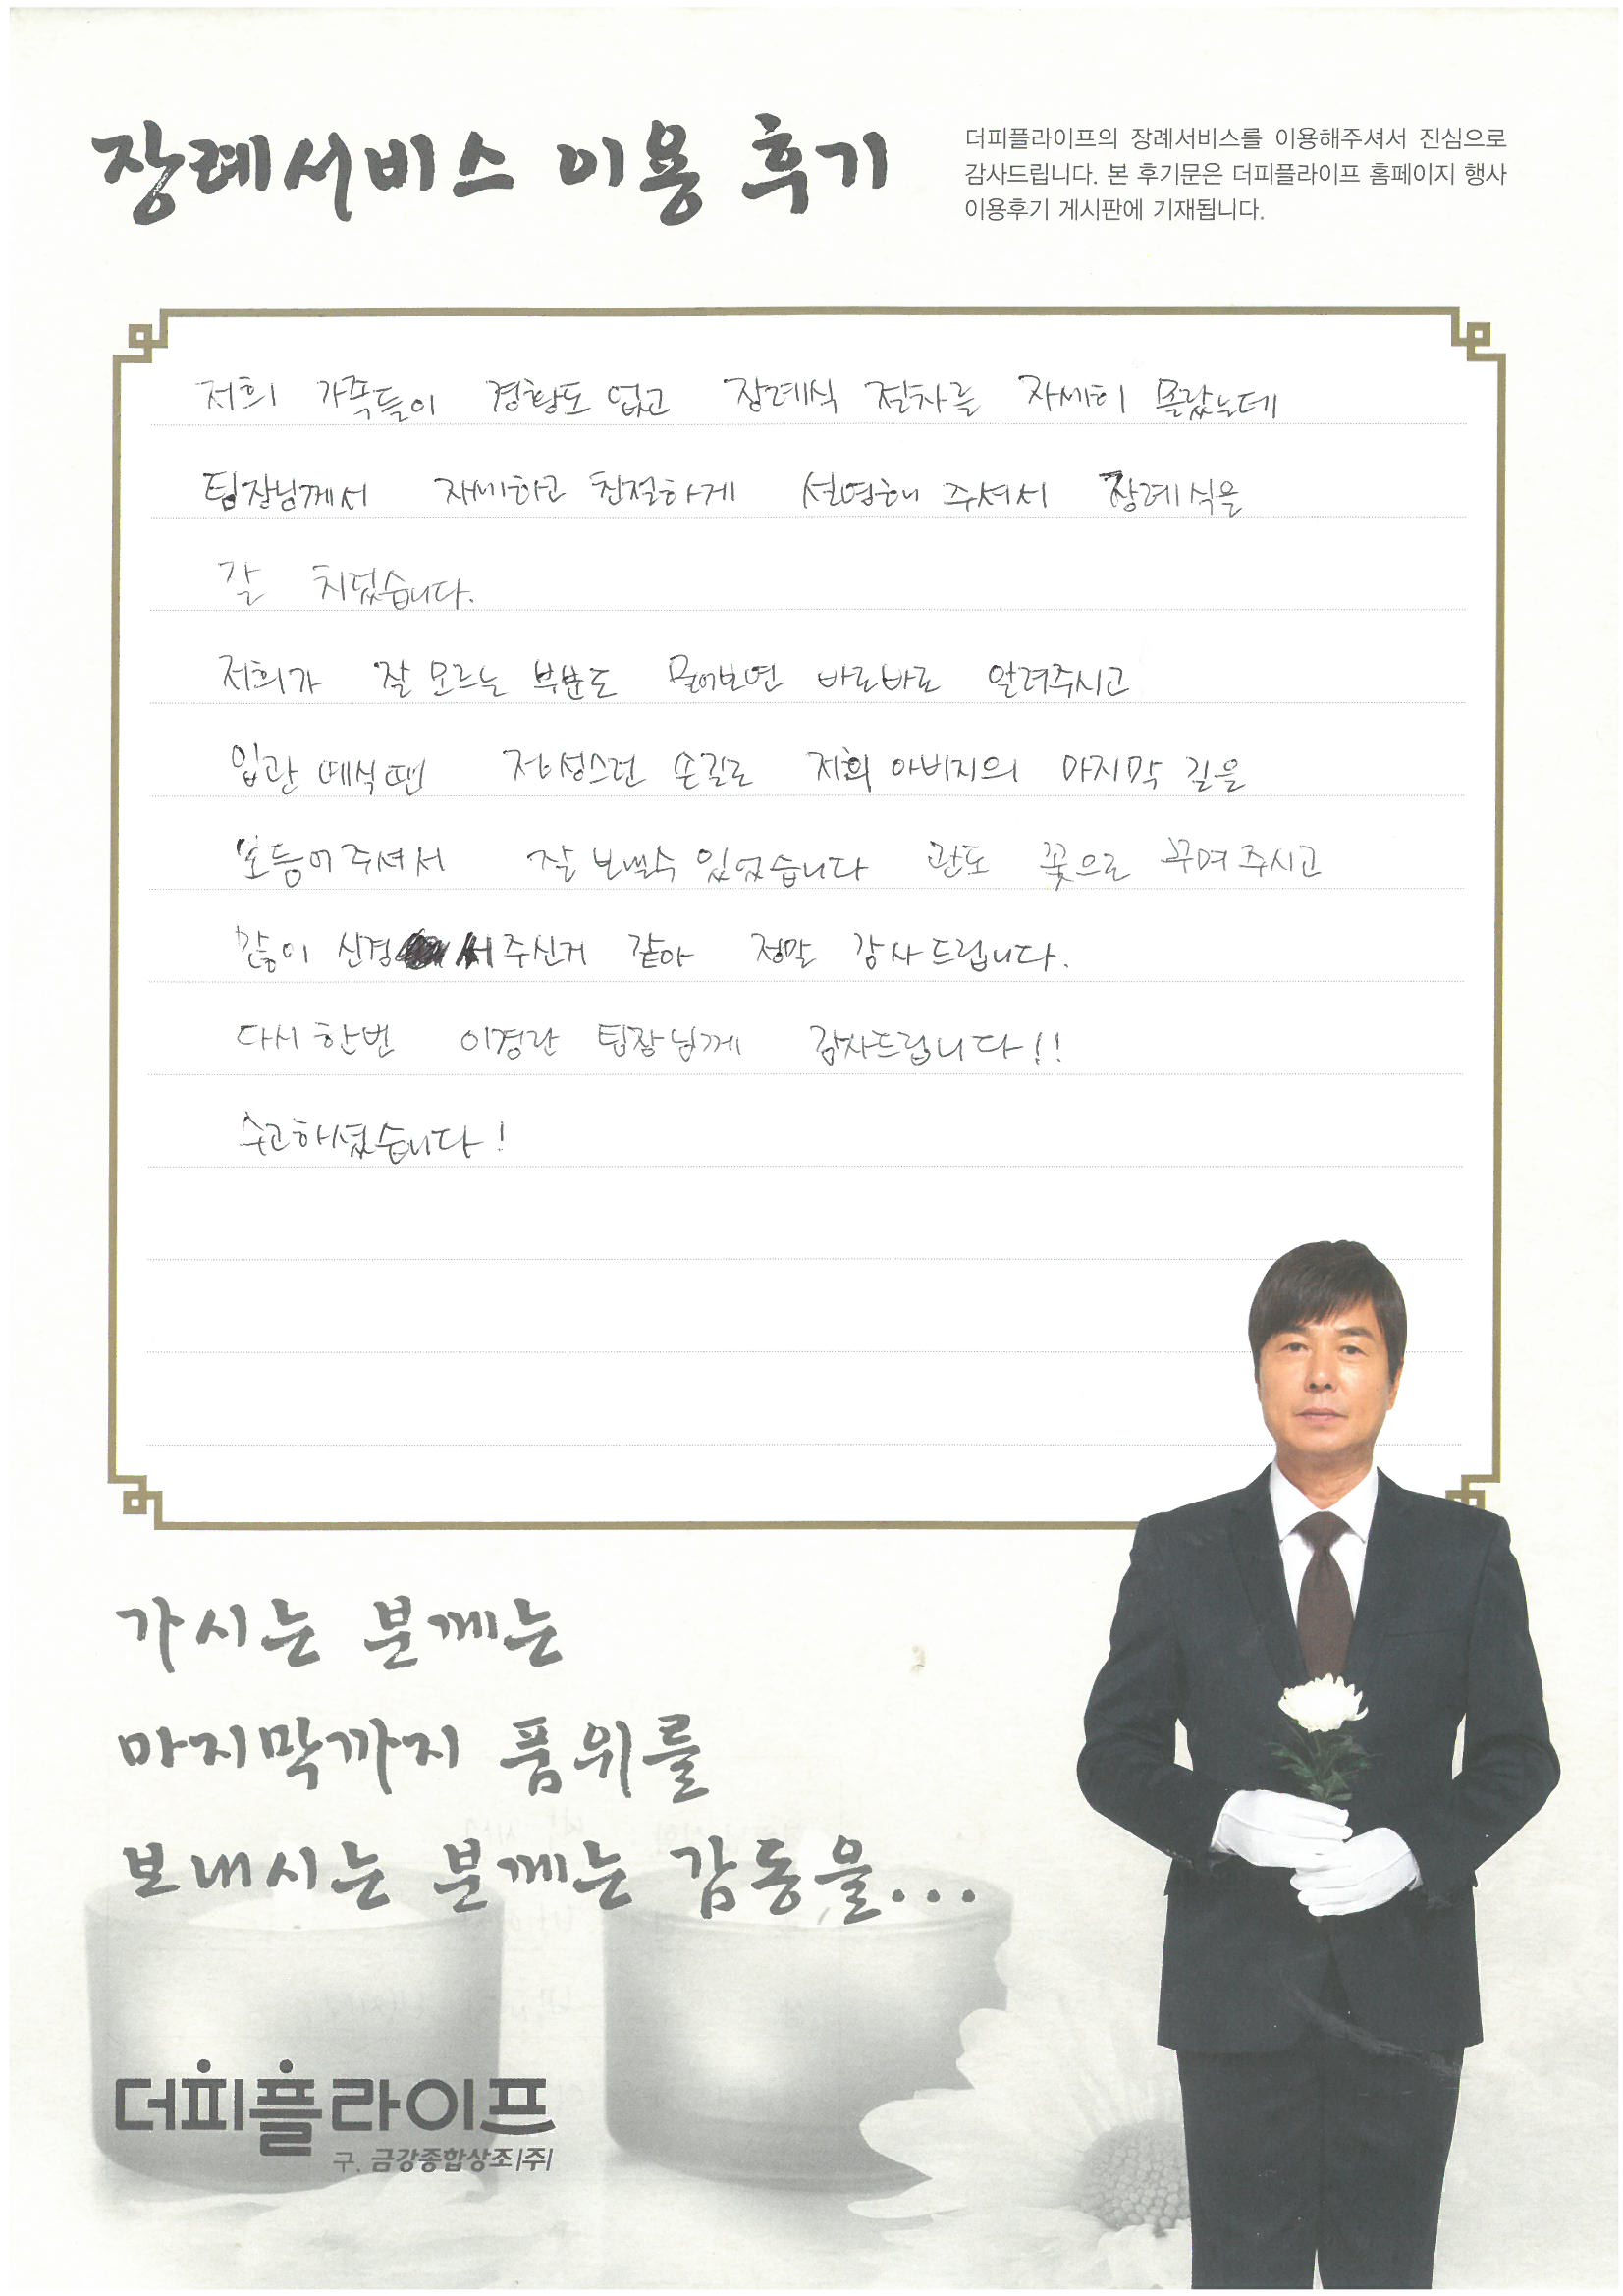 장례서비스 이용 후기
더피플라이프의 장례서비스를 이용해주셔서 진심으로
감사드립니다. 본 후기문은 더피플라이프 홈페이지 행사
이용후기 게시판에 기재됩니다.
저희 가족들이 경황도 없고 장례식 절차를 자세히 몰랐는데
팀장님께서 자세하고 친절하게 설명해 주셔서 장례식을
잘 치렀습니다.
저희가 잘 모르는 부분도 물어보면 바로바로 알려주시고
입관 예식땐 정성스런 손길로 저희 아버지의 마지막 길을
보듬어주셔서 잘 보낼수 있었습니다 관도 꽃으로 꾸며 주시고
많이 신경 써주신거 같아 정말 감사드립니다.
다시 한번 이경란 팀장님께 감사드립니다!!
수고하셨습니다!
가시는 분께는
마지막까지 품위를
보내시는 분께는 감동을...
더피플라이프
구. 금강종합상조(주)